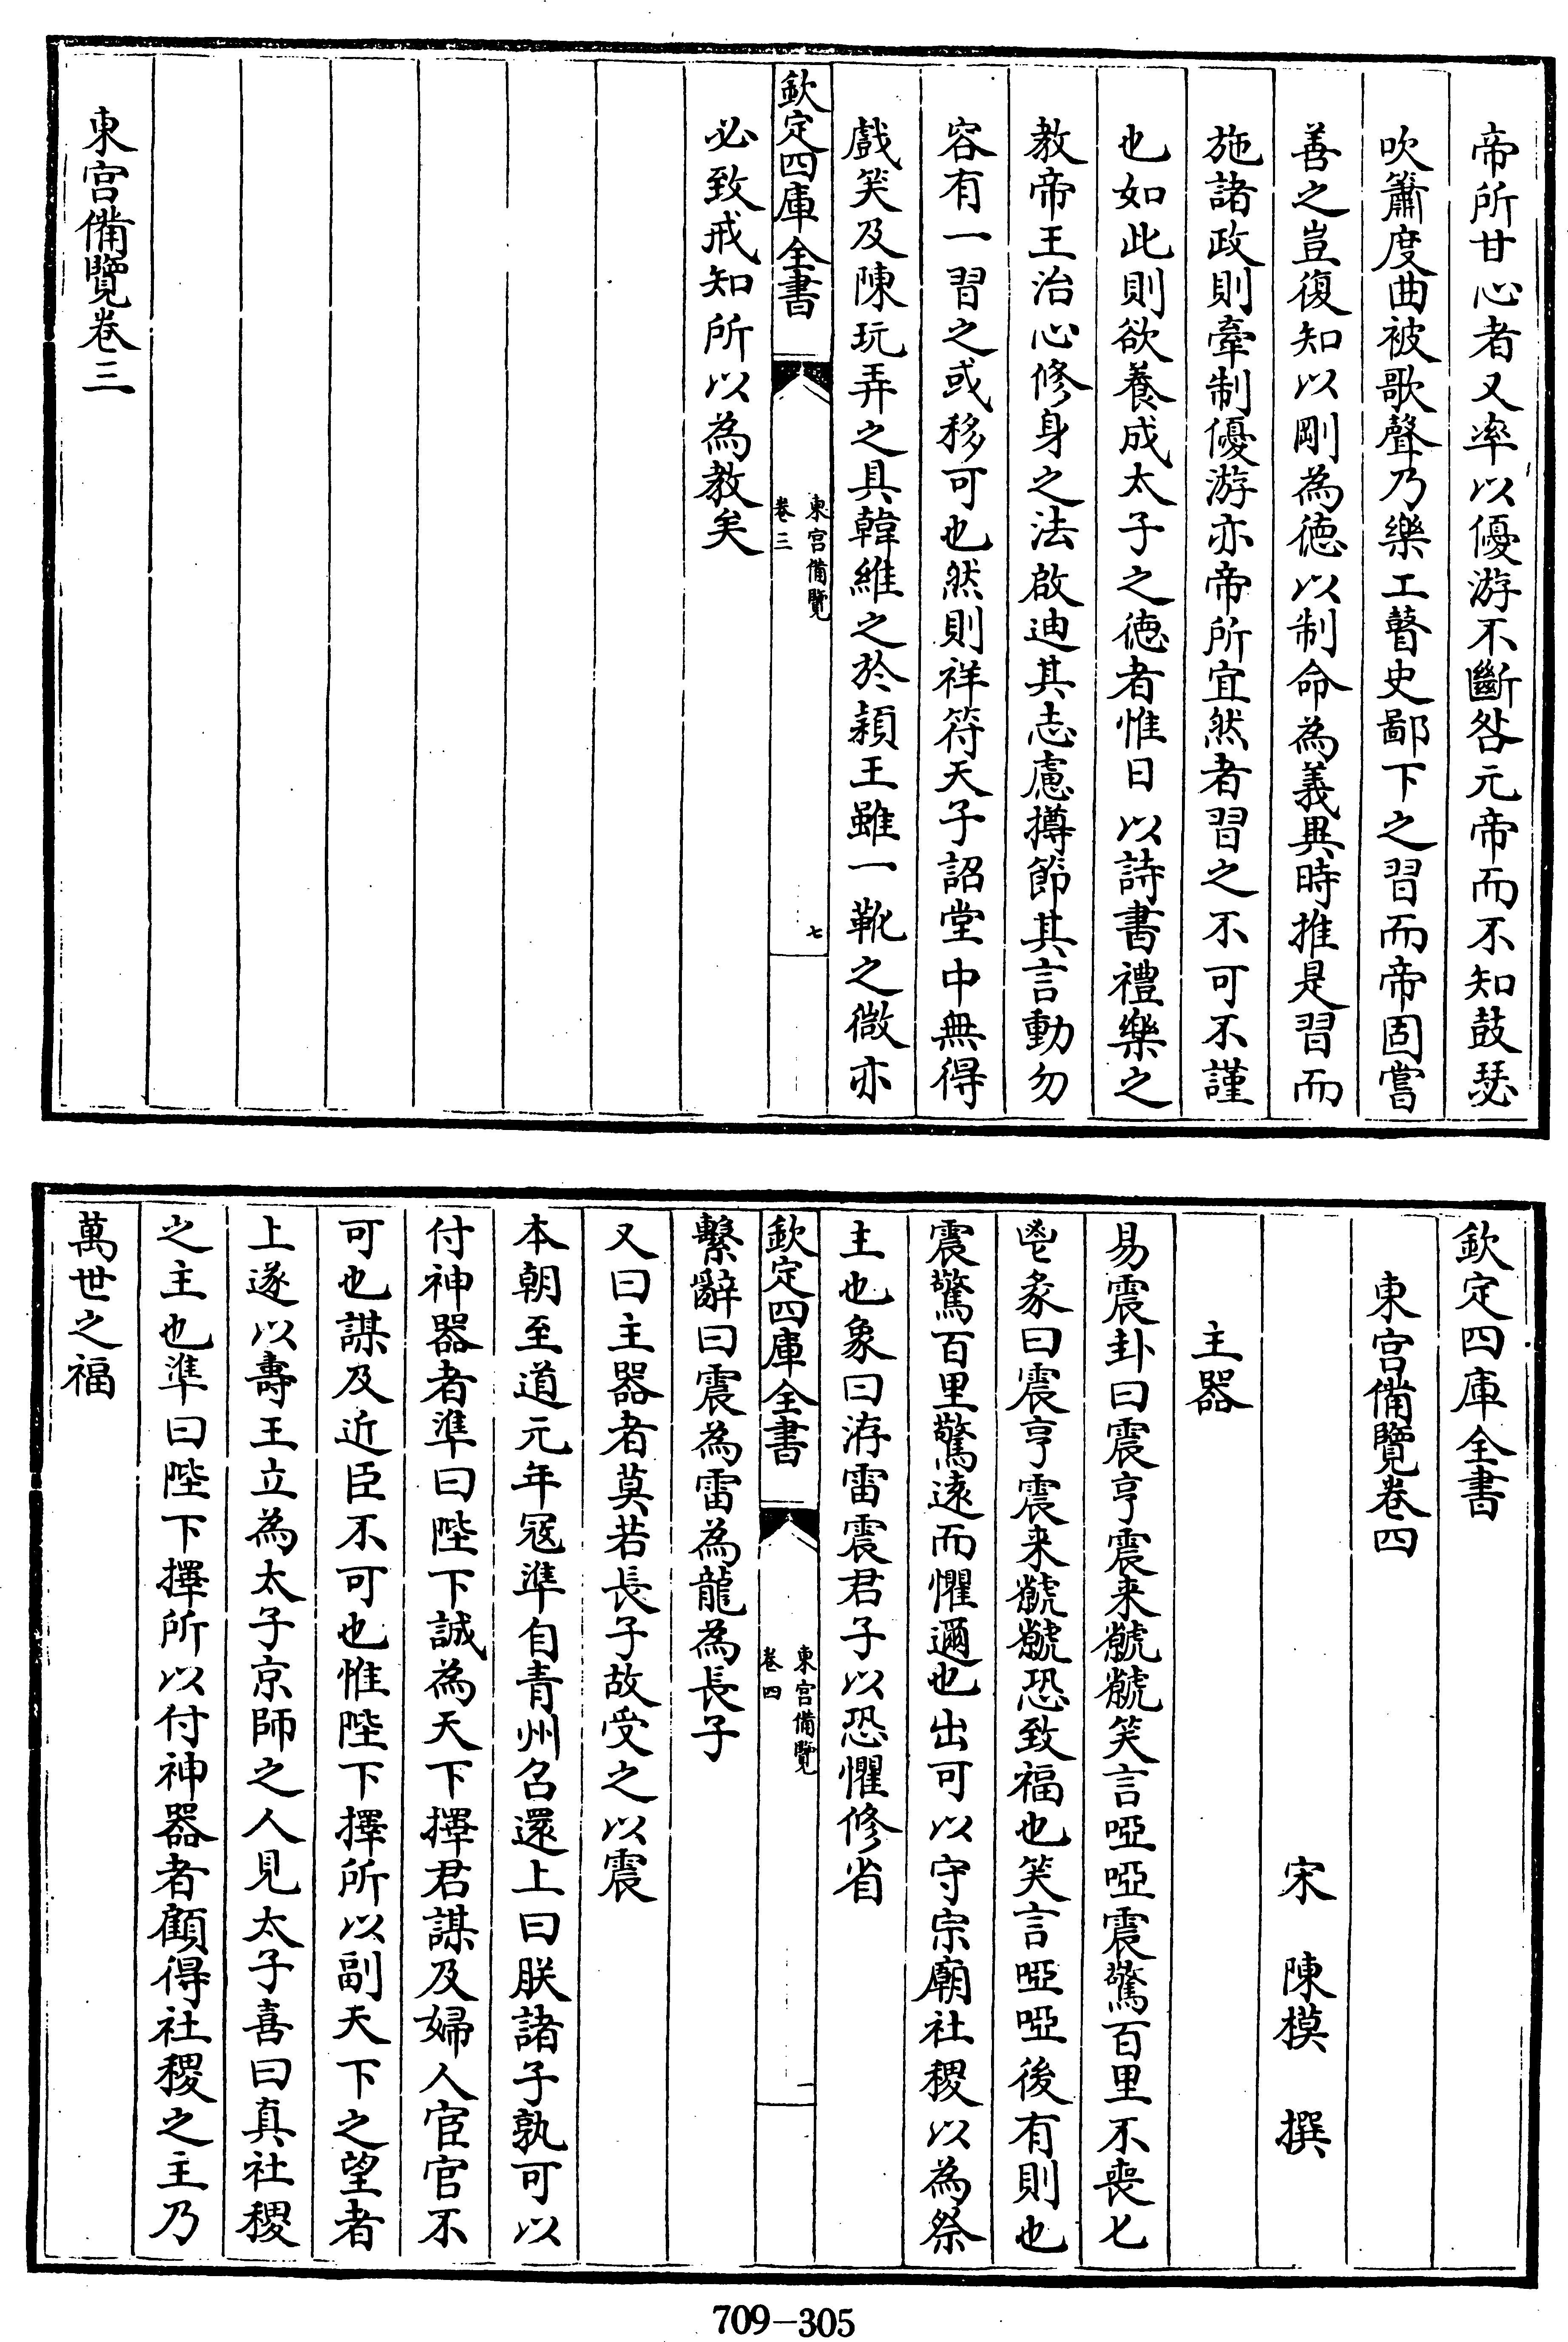 帝所甘心者又率以優游不斷咎元帝而不知鼓瑟
吹簫度曲被歌聲乃樂工瞽史鄙下之習而帝固嘗
善之豈復知以剛為德以制命為義異時推是習而
施諸政則牽制優游亦帝所宜然者習之不可不謹
也如此則欲養成太子之德者惟日以詩書禮樂之
教帝王治心修身之法啟迪其志慮撙節其言動勿
容有一習之或移可也然則祥符天子詔堂中無得
戲笑及陳玩弄之具韓維之於潁王雖一靴之微亦
欽定四庫全書
東宮備覽
卷三
七
必致戒知所以為教矣
東宮備覽卷三
欽定四庫全書
東宮備覽卷四
宋 陳模 撰
主器
易震卦曰震亨震来虩虩笑言啞啞震驚百里不喪匕
鬯彖曰震亨震来虩虩恐致福也笑言啞啞後有則也
震驚百里驚遠而懼邇也出可以守宗廟社稷以為祭
主也象曰洊雷震君子以恐懼修省
欽定四庫全書
東宮備覽
卷四
一
繫辭曰震為雷為龍為長子
又曰主器者莫若長子故受之以震
本朝至道元年寇準自青州召還上曰朕諸子孰可以
付神器者準曰陛下誠為天下擇君謀及婦人宦官不
可也謀及近臣不可也惟陛下擇所以副天下之望者
上遂以壽王立為太子京師之人見太子喜曰真社稷
之主也準曰陛下擇所以付神器者顧得社稷之主乃
萬世之福
709-305